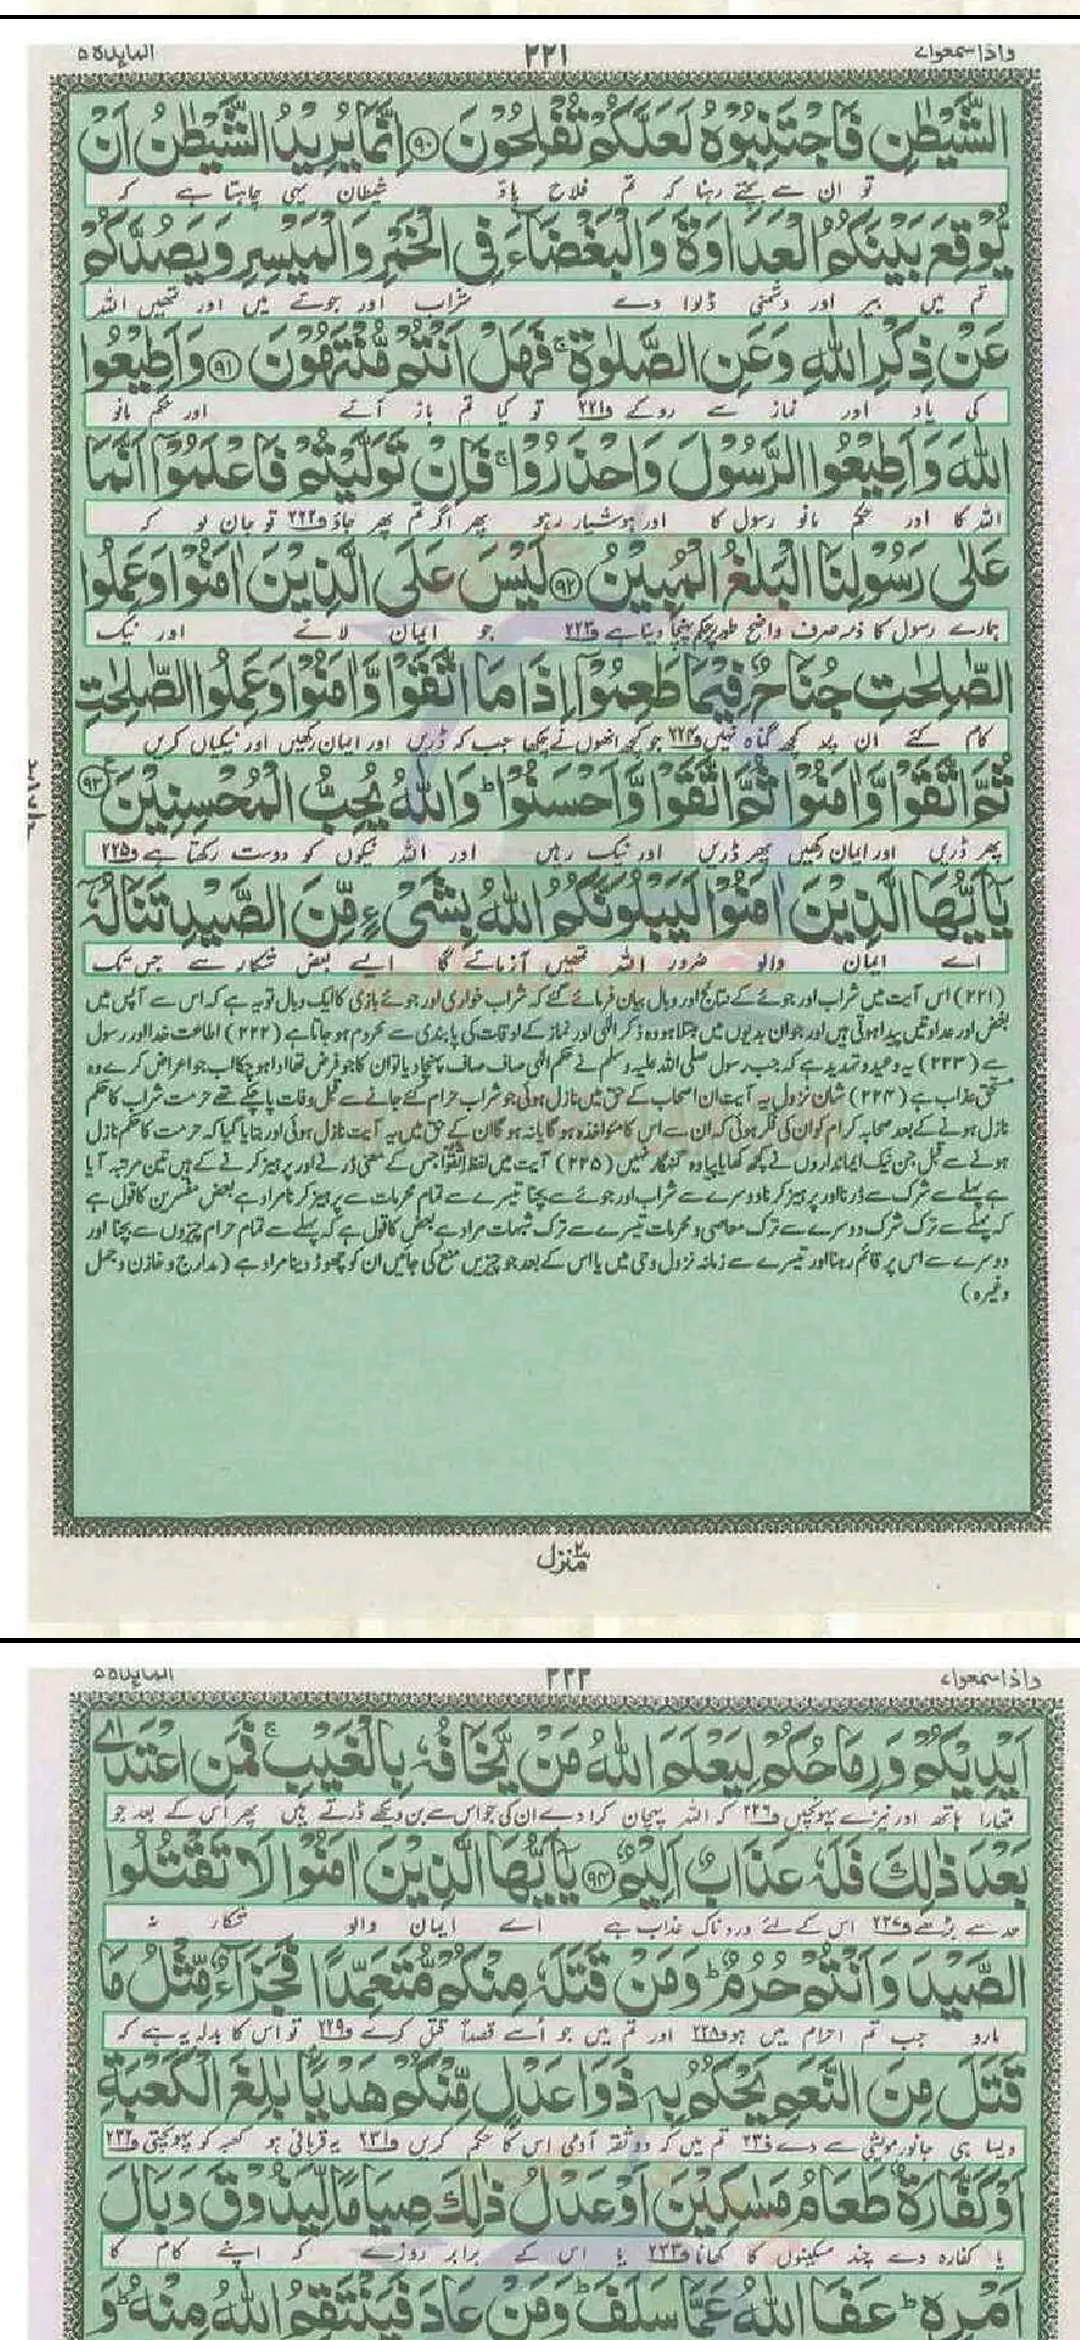 واذاسمعوا۷ ۲۲۱ المايدة۵
الشَّيْطٰنِ فَاجْتَنِبُوْهُ لَعَلَّكُمْ تُفْلِحُوْنَ ﴿۹۰﴾ اِنَّمَا يُرِيْدُ الشَّيْطٰنُ اَنْ
تو ان سے بچتے رہنا کہ تم فلاح پاؤ شیطان یہی چاہتا ہے کہ
يُّوْقِعَ بَيْنَكُمُ الْعَدَاوَةَ وَالْبَغْضَآءَ فِى الْخَمْرِ وَالْمَيْسِرِ وَيَصُدَّكُمْ
تم میں بیر اور دشمنی ڈلوا دے شراب اور جوئے میں اور تمہیں اللہ
عَنْ ذِكْرِ اللّٰهِ وَعَنِ الصَّلٰوةِ ۚ فَهَلْ اَنْتُمْ مُّنْتَهُوْنَ ﴿۹۱﴾ وَاَطِيْعُوا
کی یاد اور نماز سے روکے ف۲۲۱ تو کیا تم باز آئے اور حکم مانو
اللّٰهَ وَاَطِيْعُوا الرَّسُوْلَ وَاحْذَرُوْا ۚ فَاِنْ تَوَلَّيْتُمْ فَاعْلَمُوْٓا اَنَّمَا
اللہ کا اور حکم مانو رسول کا اور ہوشیار رہو پھر اگر تم پھر جاؤ ف۲۲۲ تو جان لو کہ
عَلٰى رَسُوْلِنَا الْبَلٰغُ الْمُبِيْنُ ﴿۹۲﴾ لَيْسَ عَلَى الَّذِيْنَ اٰمَنُوْا وَعَمِلُوا
ہمارے رسول کا ذمہ صرف واضح طور پر حکم پہنچا دینا ہے ف۲۲۳ جو ایمان لائے اور نیک
الصّٰلِحٰتِ جُنَاحٌ فِيْمَا طَعِمُوْٓا اِذَا مَا اتَّقَوْا وَّاٰمَنُوْا وَعَمِلُوا الصّٰلِحٰتِ
کام کئے ان پر کچھ گناہ نہیں ف۲۲۴ جو کچھ انھوں نے چکھا جب کہ ڈریں اور ایمان رکھیں اور نیکیاں کریں
ثُمَّ اتَّقَوْا وَّاٰمَنُوْا ثُمَّ اتَّقَوْا وَّاَحْسَنُوْا ؕ وَاللّٰهُ يُحِبُّ الْمُحْسِنِيْنَ ﴿۹۳﴾
پھر ڈریں اور ایمان رکھیں پھر ڈریں اور نیک رہیں اور اللہ نیکوں کو دوست رکھتا ہے ف۲۲۵
يٰٓاَيُّهَا الَّذِيْنَ اٰمَنُوْا لَيَبْلُوَنَّكُمُ اللّٰهُ بِشَىْءٍ مِّنَ الصَّيْدِ تَنَالُهٗٓ
اے ایمان والو ضرور اللہ تمہیں آزمائے گا ایسے بعض شکار سے جس تک
(۲۲۱) اس آیت میں شراب اور جوئے کے نتائج اور وبال بیان فرمائے گئے کہ شراب خواری اور جوئے بازی کا ایک وبال تو یہ ہے کہ اس سے آپس میں
بغض اور عداوتیں پیدا ہوتی ہیں اور جو ان بدیوں میں مبتلا ہو وہ ذکر الٰہی اور نماز کے اوقات کی پابندی سے محروم ہو جاتا ہے (۲۲۲) اطاعت خدا اور رسول
ہے (۲۲۳) یہ وعید و تہدید ہے کہ جب رسول صلی اللہ علیہ وسلم نے حکم الٰہی صاف صاف پہنچا دیا تو ان کا جو فرض تھا ادا ہو چکا اب جو اعراض کرے وہ
مستحق عذاب ہے (۲۲۴) شان نزول یہ آیت ان اصحاب کے حق میں نازل ہوئی جو شراب حرام کئے جانے سے قبل وفات پا چکے تھے حرمت شراب کا حکم
نازل ہونے کے بعد صحابہ کرام کو ان کی فکر ہوئی کہ ان سے اس کا مواخذہ ہو گا یا نہ ہو گا ان کے حق میں یہ آیت نازل ہوئی اور بتایا گیا کہ حرمت کا حکم نازل
ہونے سے قبل جن نیک ایمانداروں نے کچھ کھایا پیا وہ گنہگار نہیں (۲۲۵) آیت میں لفظ اتقوا جس کے معنی ڈرنے اور پرہیز کرنے کے ہیں تین مرتبہ آیا
ہے پہلے سے شرک سے ڈرنا اور پرہیز کرنا دوسرے سے شراب اور جوئے سے بچنا تیسرے سے تمام محرمات سے پرہیز کرنا مراد ہے بعض مفسرین کا قول ہے
کہ پہلے سے ترک شرک دوسرے سے ترک معاصی و محرمات تیسرے سے ترک شبہات مراد ہے بعض کا قول ہے کہ پہلے سے تمام حرام چیزوں سے بچنا اور
دوسرے سے اس پر قائم رہنا اور تیسرے سے زمانہ نزول وحی میں یا اس کے بعد جو چیزیں منع کی جائیں ان کو چھوڑ دینا مراد ہے (مدارج و خازن و جمل
وغیرہ)
منزل۲
واذاسمعوا۷ ۲۲۲ المايدة۵
اَيْدِيْكُمْ وَرِمَاحُكُمْ لِيَعْلَمَ اللّٰهُ مَنْ يَّخَافُهٗ بِالْغَيْبِ ۚ فَمَنِ اعْتَدٰى
تمہارا ہاتھ اور نیزے پہونچیں ف۲۲۶ کہ اللہ پہچان کرا دے ان کی جو اس سے بن دیکھے ڈرتے ہیں پھر اس کے بعد جو
بَعْدَ ذٰلِكَ فَلَهٗ عَذَابٌ اَلِيْمٌ ﴿۹۴﴾ يٰٓاَيُّهَا الَّذِيْنَ اٰمَنُوْا لَا تَقْتُلُوا
حد سے بڑھے ف۲۲۷ اس کے لئے دردناک عذاب ہے اے ایمان والو شکار نہ
الصَّيْدَ وَاَنْتُمْ حُرُمٌ ؕ وَمَنْ قَتَلَهٗ مِنْكُمْ مُّتَعَمِّدًا فَجَزَآءٌ مِّثْلُ مَا
مارو جب تم احرام میں ہو ف۲۲۸ اور تم میں جو اُسے قصداً قتل کرے ف۲۲۹ تو اس کا بدلہ یہ ہے کہ
قَتَلَ مِنَ النَّعَمِ يَحْكُمُ بِهٖ ذَوَا عَدْلٍ مِّنْكُمْ هَدْيًۢا بٰلِغَ الْكَعْبَةِ
ویسا ہی جانور مویشی سے دے ف۲۳۰ تم میں کہ دو ثقہ آدمی اس کا حکم کریں ف۲۳۱ یہ قربانی ہو کعبہ کو پہونچتی ف۲۳۲
اَوْ كَفَّارَةٌ طَعَامُ مَسٰكِيْنَ اَوْ عَدْلُ ذٰلِكَ صِيَامًا لِّيَذُوْقَ وَبَالَ
یا کفارہ دے چند مسکینوں کا کھانا ف۲۳۳ یا اس کے برابر روزے کہ اپنے کام کا
اَمْرِهٖ ؕ عَفَا اللّٰهُ عَمَّا سَلَفَ ؕ وَمَنْ عَادَ فَيَنْتَقِمُ اللّٰهُ مِنْهُ ؕ وَ